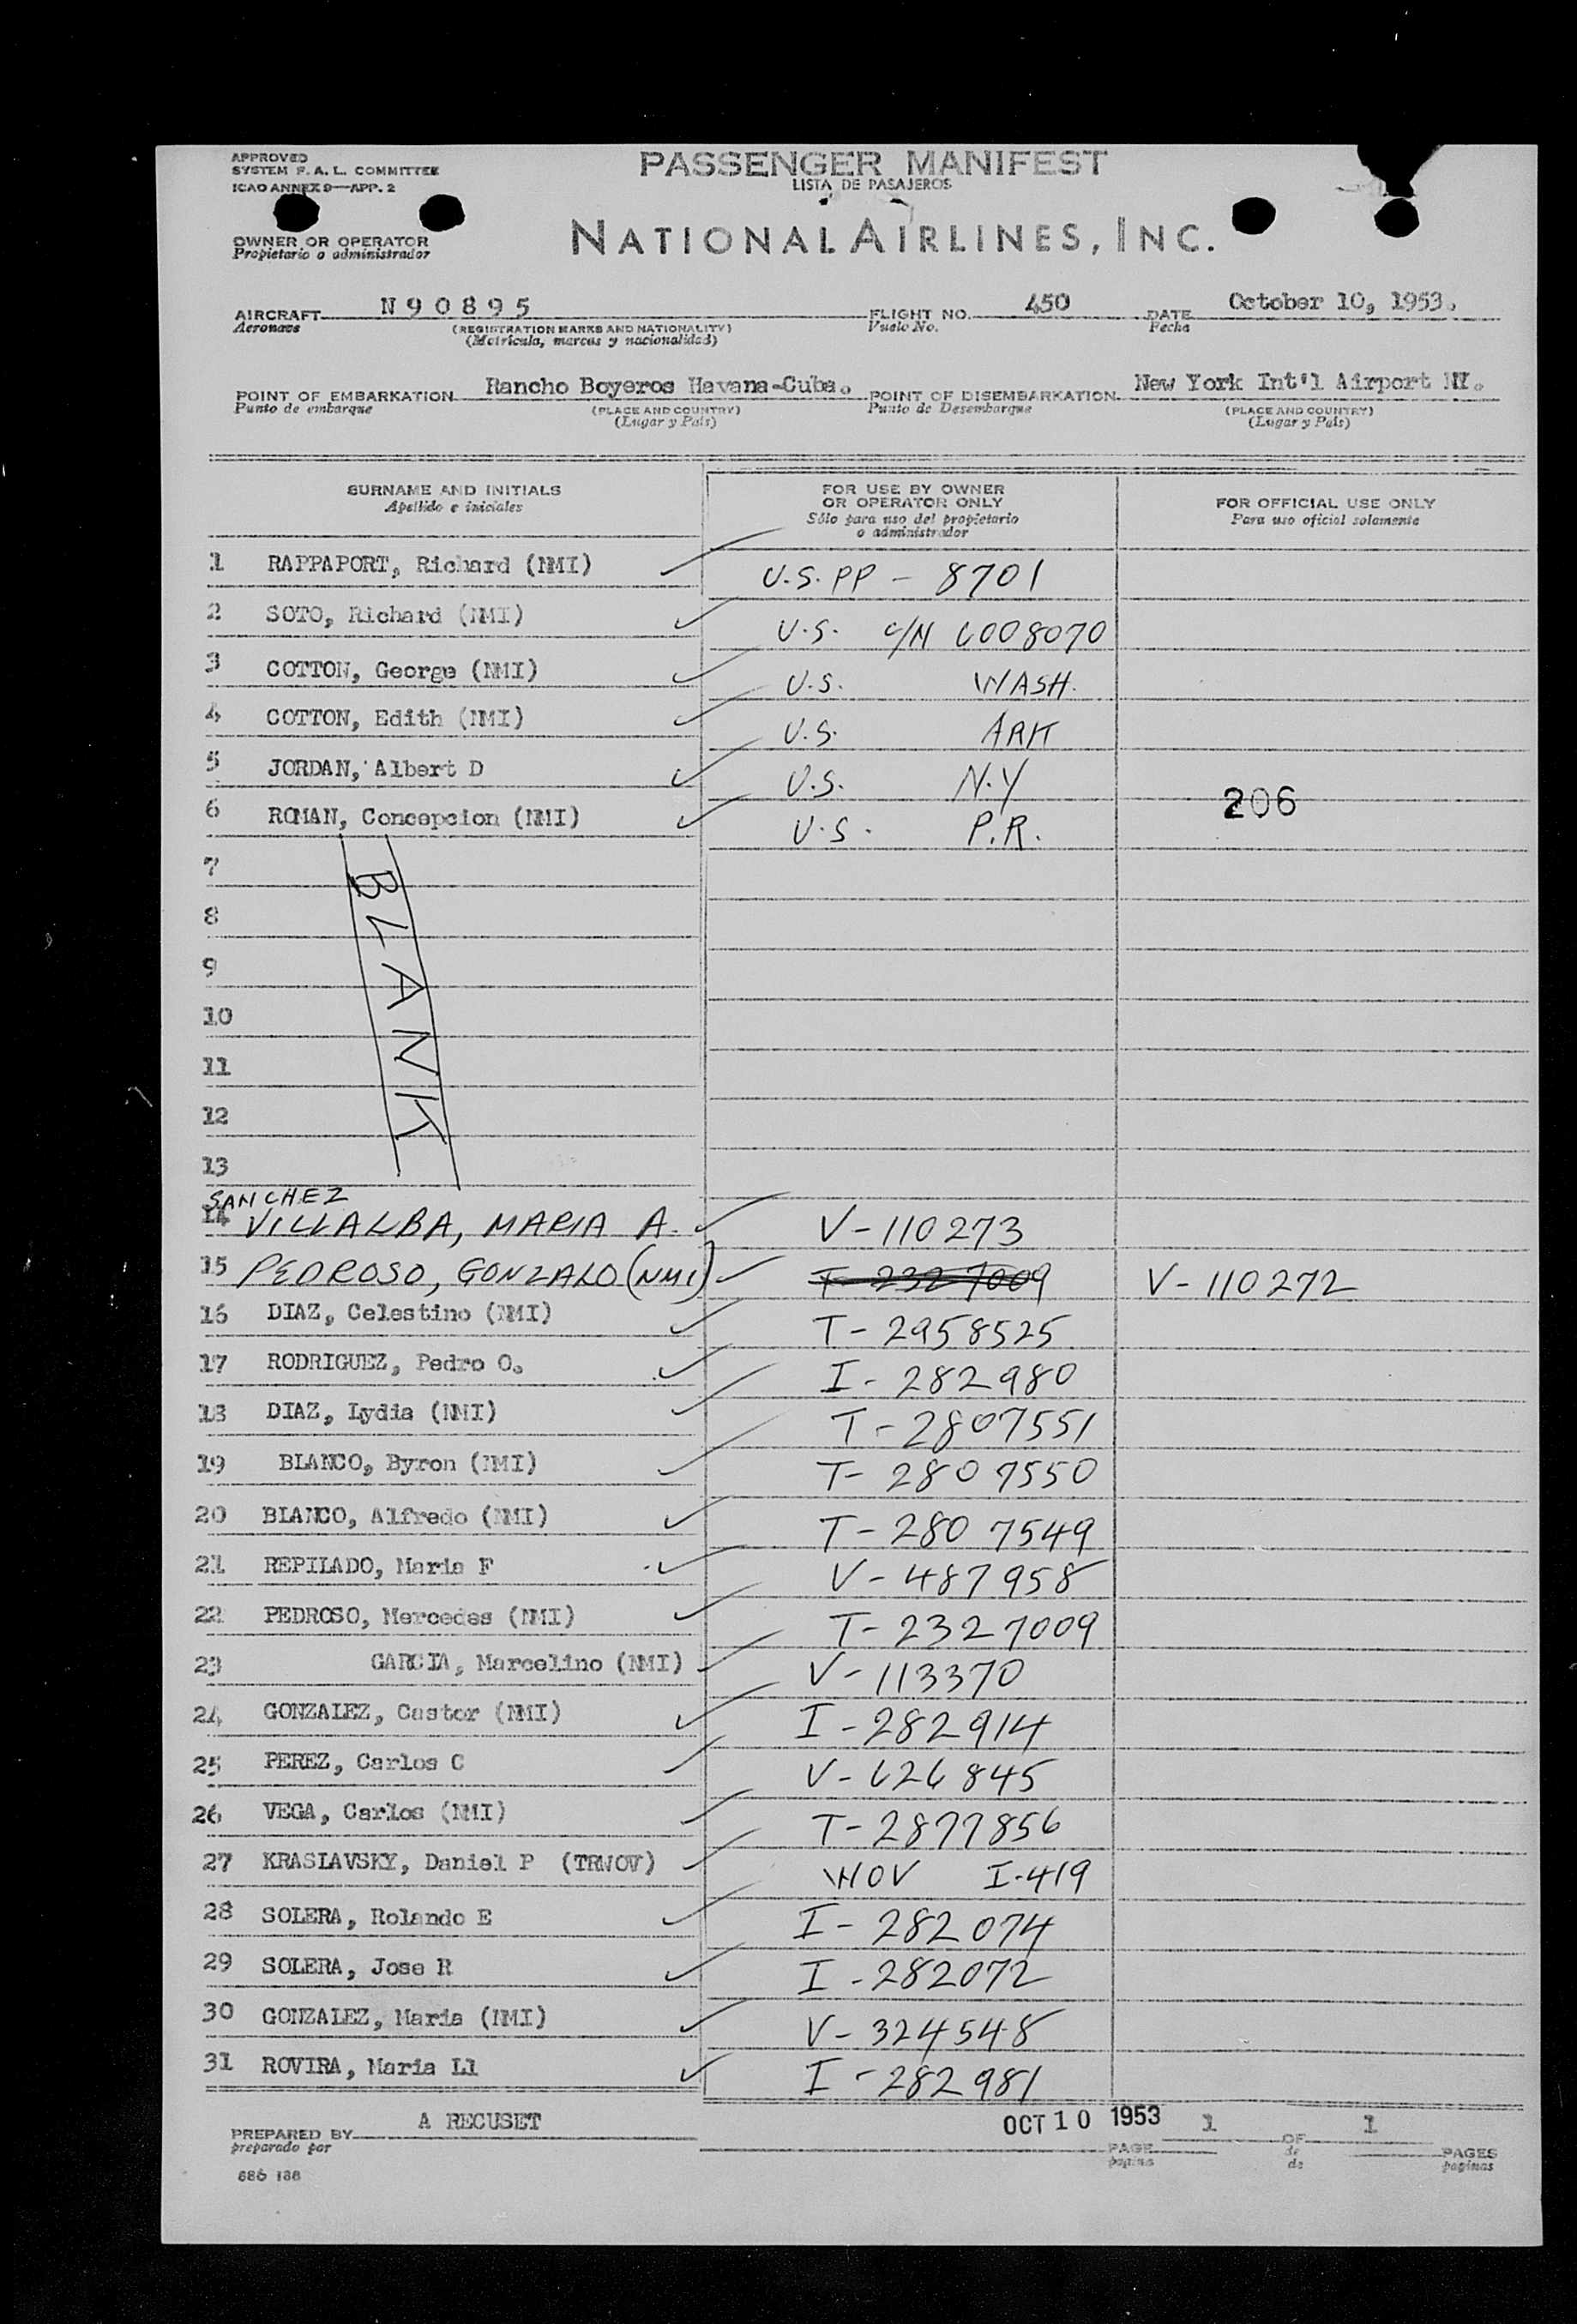 APPROVED
SYSTEM F. A. L. COMMITTEE
ICAO ANNEX 9—APP. 2
PASSENGER MANIFEST
LISTA DE PASAJEROS
NATIONAL AIRLINES, INC.
OWNER OR OPERATOR
Propietario o administrador
AIRCRAFT N90895 FLIGHT NO. 450 DATE October 10, 1953.
Aeronave (REGISTRATION MARKS AND NATIONALITY) Vuelo No. Fecha
(Matricula, marcas y nacionalidad)
POINT OF EMBARKATION Rancho Boyeros Havana-Cuba. POINT OF DISEMBARKATION New York Int'l Airport NY.
Punto de embarque (PLACE AND COUNTRY) Punto de Desembarque (PLACE AND COUNTRY)
(Lugar y País) (Lugar y País)
SURNAME AND INITIALS FOR USE BY OWNER OR OPERATOR ONLY FOR OFFICIAL USE ONLY
Apellido e iniciales Sólo para uso del propietario o administrador Para uso oficial solamente
1 RAPPAPORT, Richard (NMI) U.S. PP - 8701
2 SOTO, Richard (NMI) U.S. C/N 6008070
3 COTTON, George (NMI) U.S. WASH.
4 COTTON, Edith (NMI) U.S. ARK
5 JORDAN, Albert D U.S. N.Y
6 ROMAN, Concepcion (NMI) U.S. P.R. 206
7
8
9
10
11
12
13
BLANK
SANCHEZ
14 VILLALBA, MARIA A. V-110273
15 PEDROSO, GONZALO (NMI) T-2327009 V-110272
16 DIAZ, Celestino (NMI) T-2958525
17 RODRIGUEZ, Pedro O. I-282980
18 DIAZ, Lydia (NMI) T-2807551
19 BLANCO, Byron (NMI) T-2807550
20 BLANCO, Alfredo (NMI) T-2807549
21 REPILADO, Maria F V-487958
22 PEDROSO, Mercedes (NMI) T-2327009
23 GARCIA, Marcelino (NMI) V-113370
24 GONZALEZ, Castor (NMI) I-282914
25 PEREZ, Carlos C V-626845
26 VEGA, Carlos (NMI) T-2877856
27 KRASLAVSKY, Daniel P (TRWOV) WOV I-419
28 SOLERA, Rolando E I-282074
29 SOLERA, Jose R I-282072
30 GONZALEZ, Maria (NMI) V-324548
31 ROVIRA, Maria Ll I-282981
PREPARED BY A RECUSET OCT 10 1953 PAGE 1 OF 1 PAGES
preparado por pagina de paginas
de
686 188